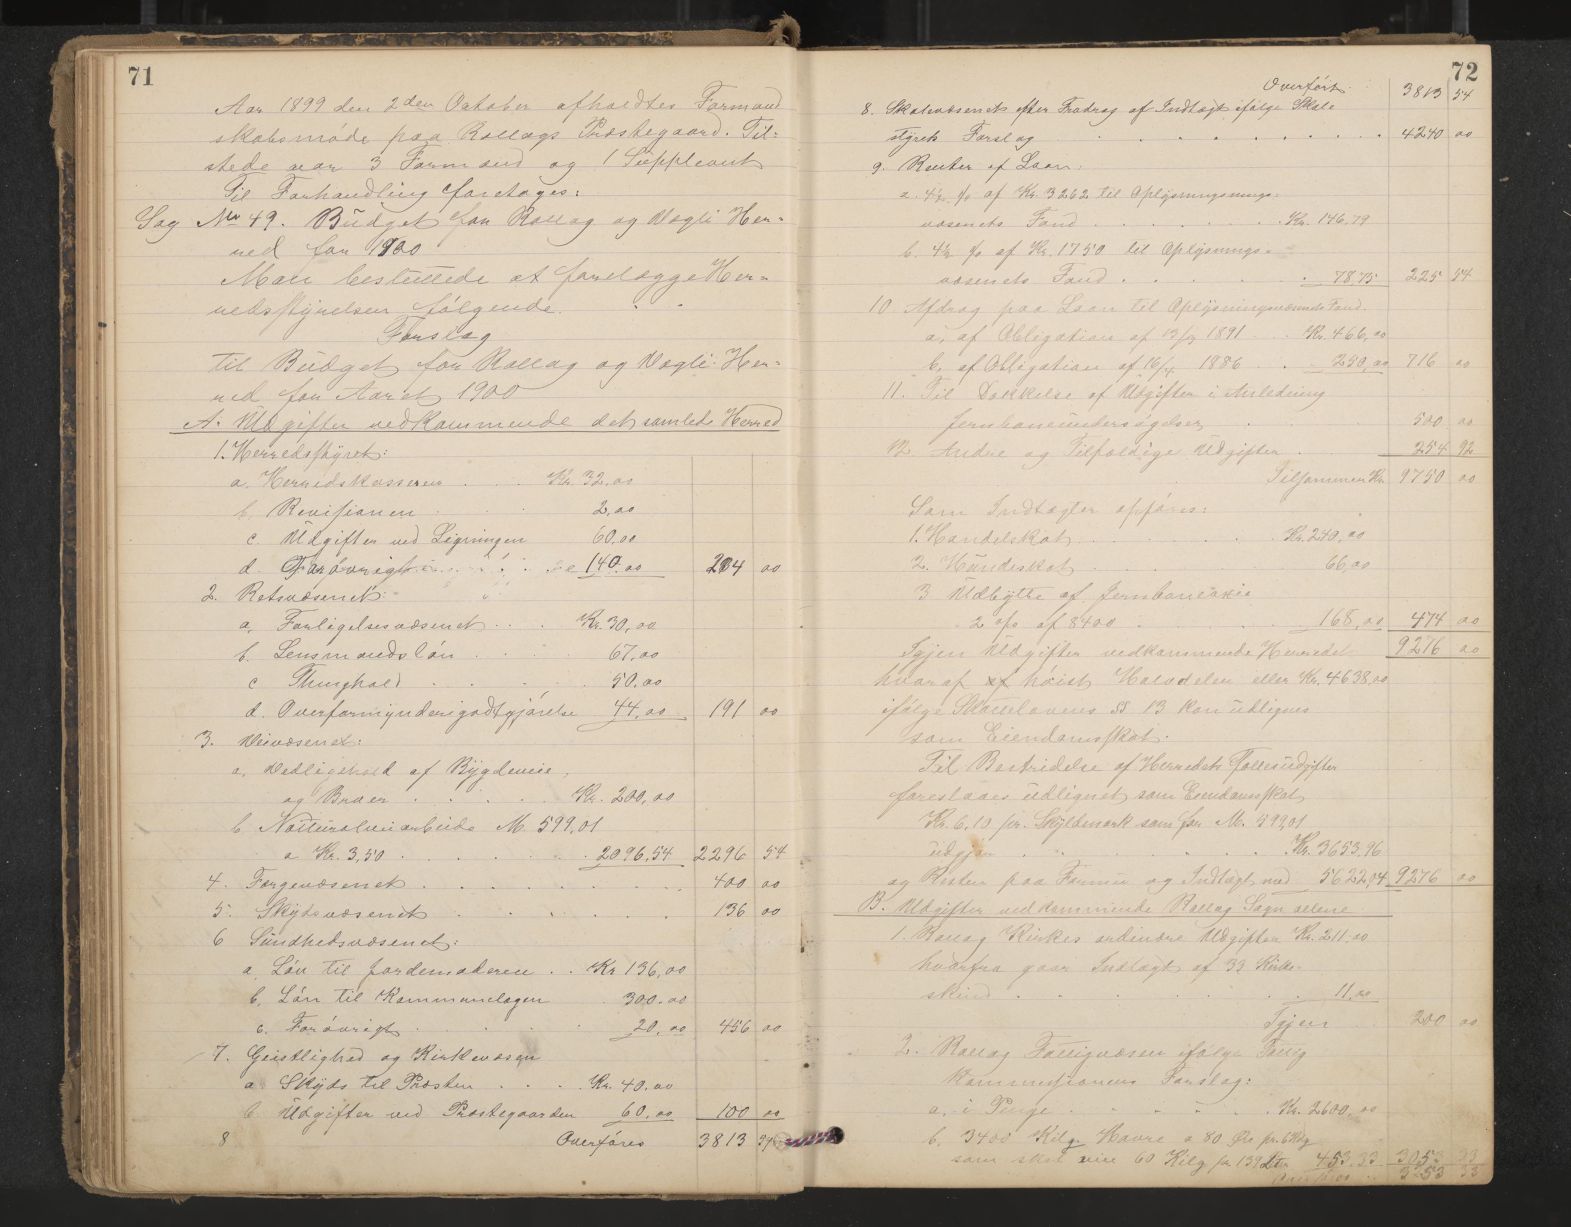 71
Aar 1899 den 2den October afholdtes Formand
skabsmøde paa Rollags Præstegaard. Til=
stede var 3 Formænd og 1 Suppleant
Til Forhandling foretoges:
Sag No 49. Budget for Rollag og Vegli Her=
red for 1900
Man besluttede at forelægge Her=
redsstyrelsen følgende
Forslag
til Budget for Rollag og Vegli Her=
red for Aaret 1900
A. Udgifter vedkommende det samlede Herred
1. Herredsstyret:
a. Herredskasseren . . . Kr. 32,00
b. Revisionen . . . 2,00
c. Udgifter ved Ligningen 60,00
d. Forøvrigt . . . 140,00 234 00
2. Retsvæsenet:
a. Forligelsesvæsenet . . . Kr. 30,00
b. Lensmandsløn . . . 67,00
c Thinghold . . . 50,00
d. Overformynderigodtgjørelse 44,00 191 00
3. Veivæsenet:
a. Vedligehold af Bygdeveie
og Broer . . . Kr. 200,00
b Naturalveiarbeide M. 599,01
a Kr. 3,50 . . . 2096,54 2296 54
4. Færgevæsenet . . . 400 00
5. Skydsvæsenet . . . 136 00
6 Sundhedsvæsenet:
a. Løn til Jordemoderen . . Kr 136,00
b. Løn til Kommunelægen . 300.00
c. Forøvrigt . . . 20,00 456 00
7. Geistlighed og Kirkevæsen
a. Skyds til Præsten . . . Kr. 40,00
b. Udgifter ved Præstegaarden 60,00 100 00
8 Overføres 3813 54
72
Overført: 3813 54
8. Skolevæsenet efter Fradrag af Indtægt ifølge Skole
styrets Forslag . . . 4240 00
9. Renter af Laan:
a. 4½ % af Kr. 3262 til Oplysnings
væsenets Fond . . . Kr. 146,79
b. 4½ % af Kr. 1750 til Oplysnings=
væsenets Fond . . . 78,75 225 54
10. Afdrag paa Laan til Oplysningsvæsenets Fond.
a. af Obligation af 1891 . . Kr. 466,00
b. af Obligation af 16/4 1886 . . 250,00 716 00
11. Til Dækkelse af Udgifter i Anledning
Jernbaneundersøgelser . . 500 00
12. Andre og Tilfældige Udgifter . 254 92
Tilsammen Kr. 9750 00
Som Indtægter opføres:
1. Handelskat . . . Kr. 240,00
2. Hundeskat . . . 66,00
3 Udbytte af Jernbaneaxie
2 o/o af 8400 . . . 168,00 474 00
Igjen Udgifter vedkommende Herredet 9276 00
hvoraf høist Halvdelen eller Kr. 4638,00
ifølge Skattelovens §§ 13 kan udlignes
som Eiendomsskat.
Til Bestridelse af Herredets Fællesudgifter
foreslaaes udlignet som Eiendomsskat
Kr. 6,10 pr. Skyldmark som for M. 599,01
udgjør . . . Kr. 3653,96
og Resten paa Formue og Indtægt med 5622,04 9276 00
B. Udgifter vedkommende Rollag Sogn alene
1. Rollag Kirkes ordinære Udgifter Kr. 211,00
hvorfra gaar Indtægt af 33 Kirke-
skind . . . 11,00
Igjen 200 00
2. Rollag Fattigvæsen ifølge Fattig
kommissionens Forslag:
a. i Penge . . . Kr. 2600,00
b. 3400 Kilg. Havre a 80 Øre pr. 6 Klg
som skal veie 60 Kilg pr 139 Ltr. 453.33 3053 33
3253 33